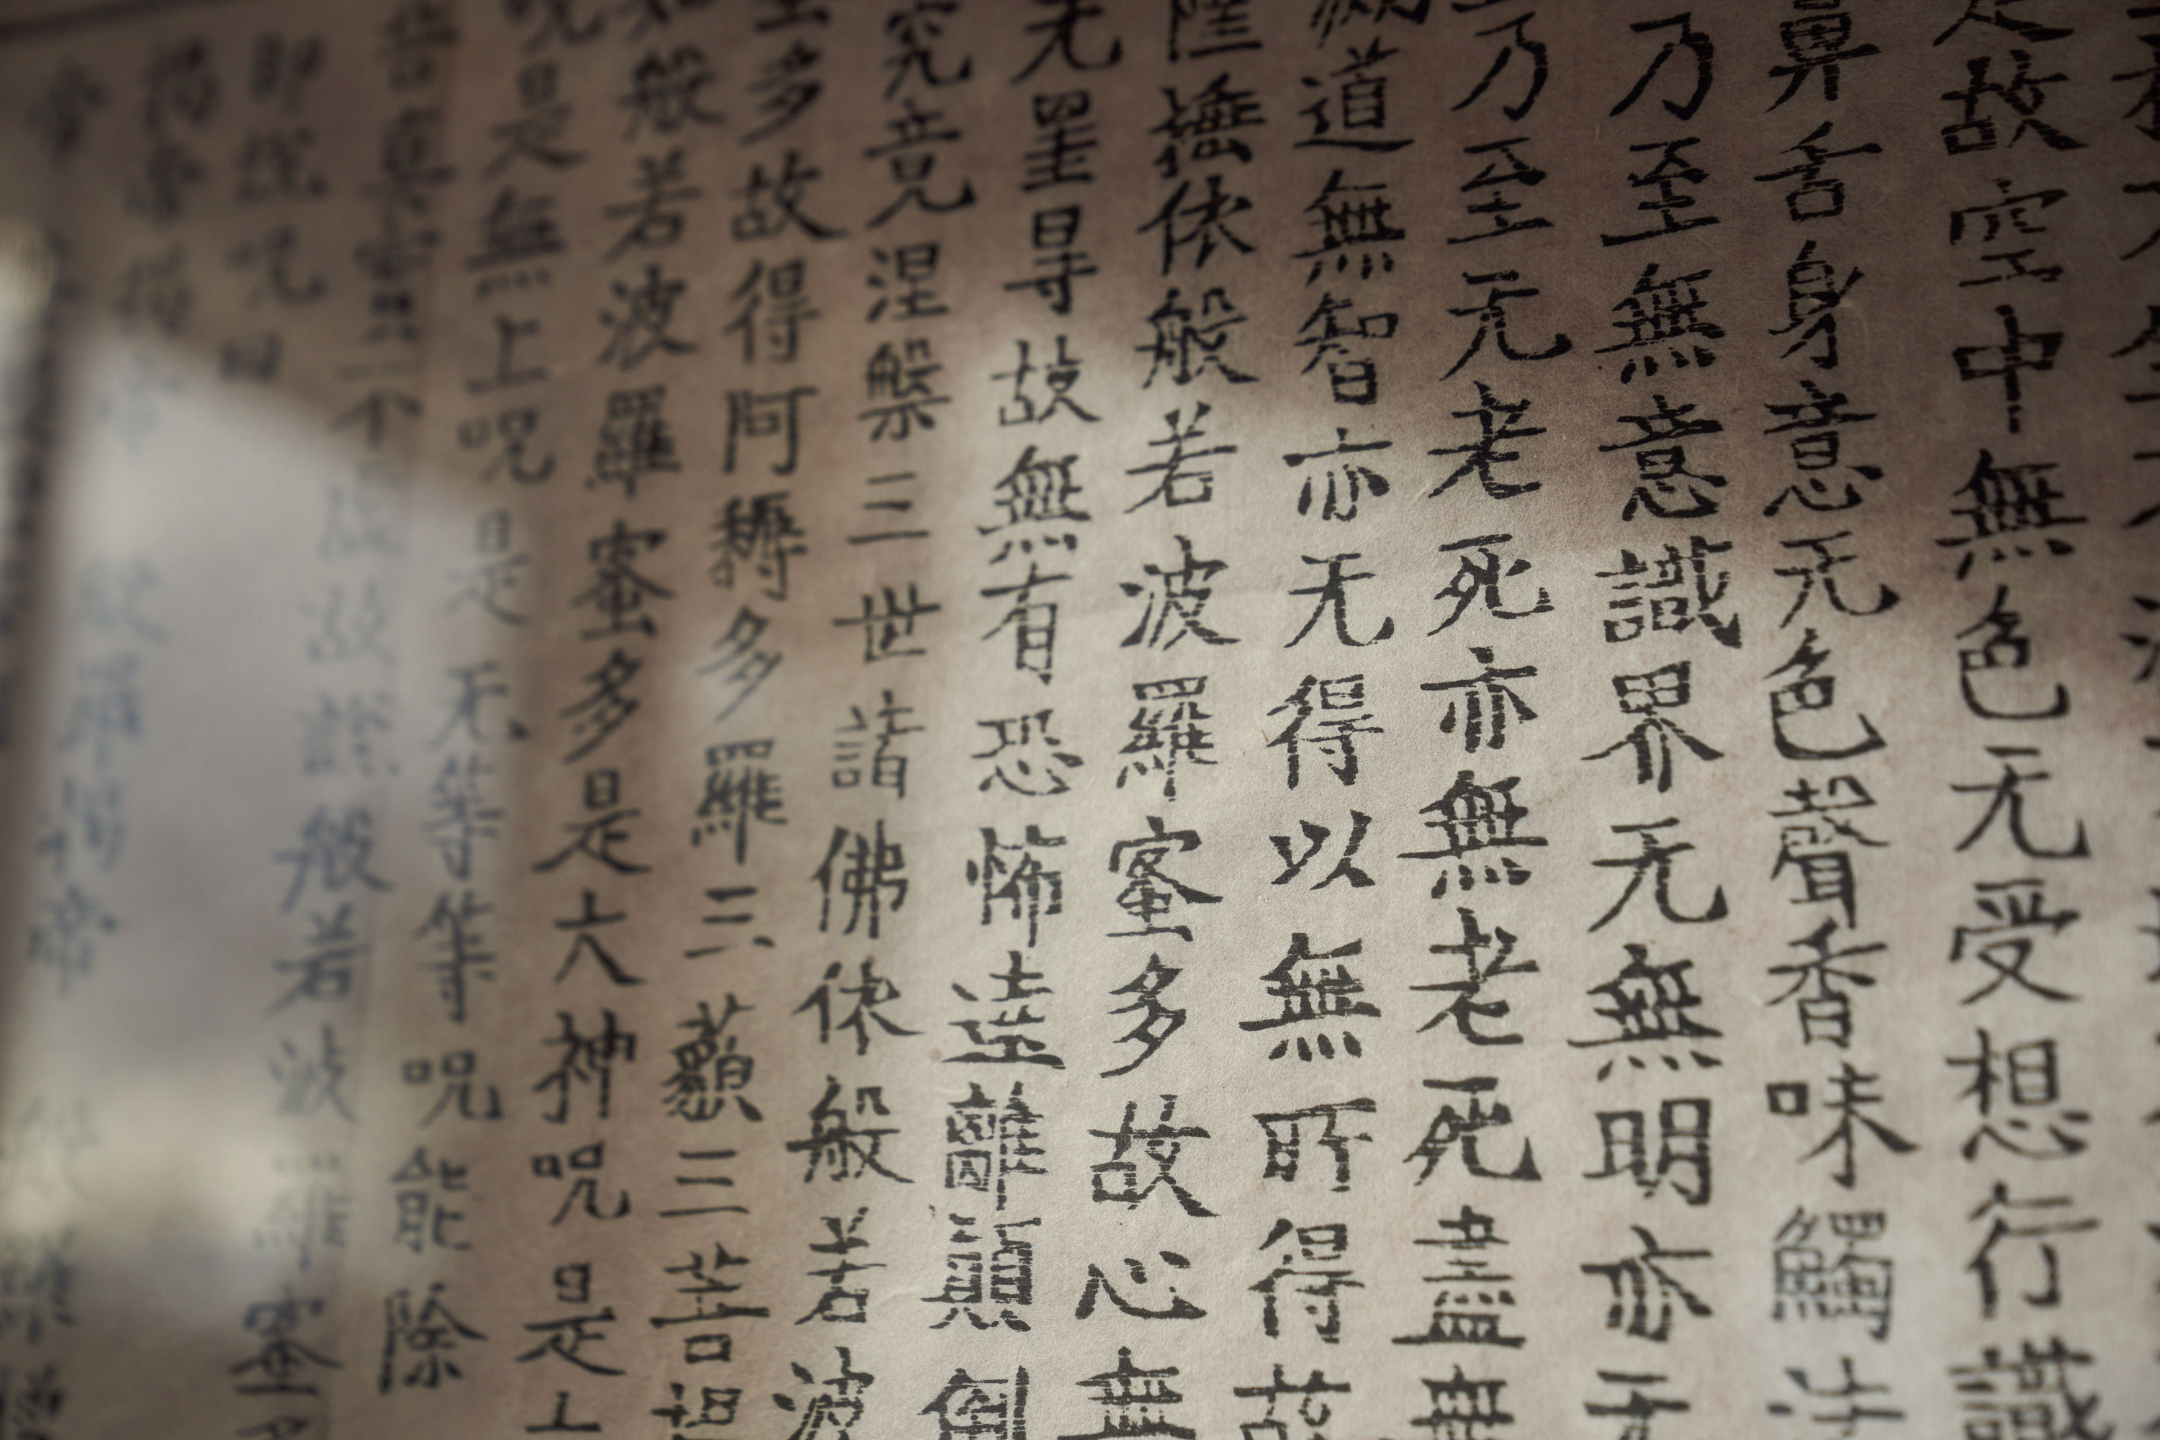 是故空中無色无受想行識
鼻舌身意无色聲香味觸法
乃至無意識界无無明亦无
乃至无老死亦無老死盡無
道無智亦无得以無所得故
捶依般若波羅蜜多故心無
无罣㝵故無有恐怖遠離顛倒
究竟涅槃三世諸佛依般若波
多故得阿耨多羅三藐三菩提
知般若波羅蜜多是大神呪是
呪是無上呪是无等等呪能除
真實不虛故說般若波羅蜜多
即說呪曰
揭帝揭帝 般羅揭帝